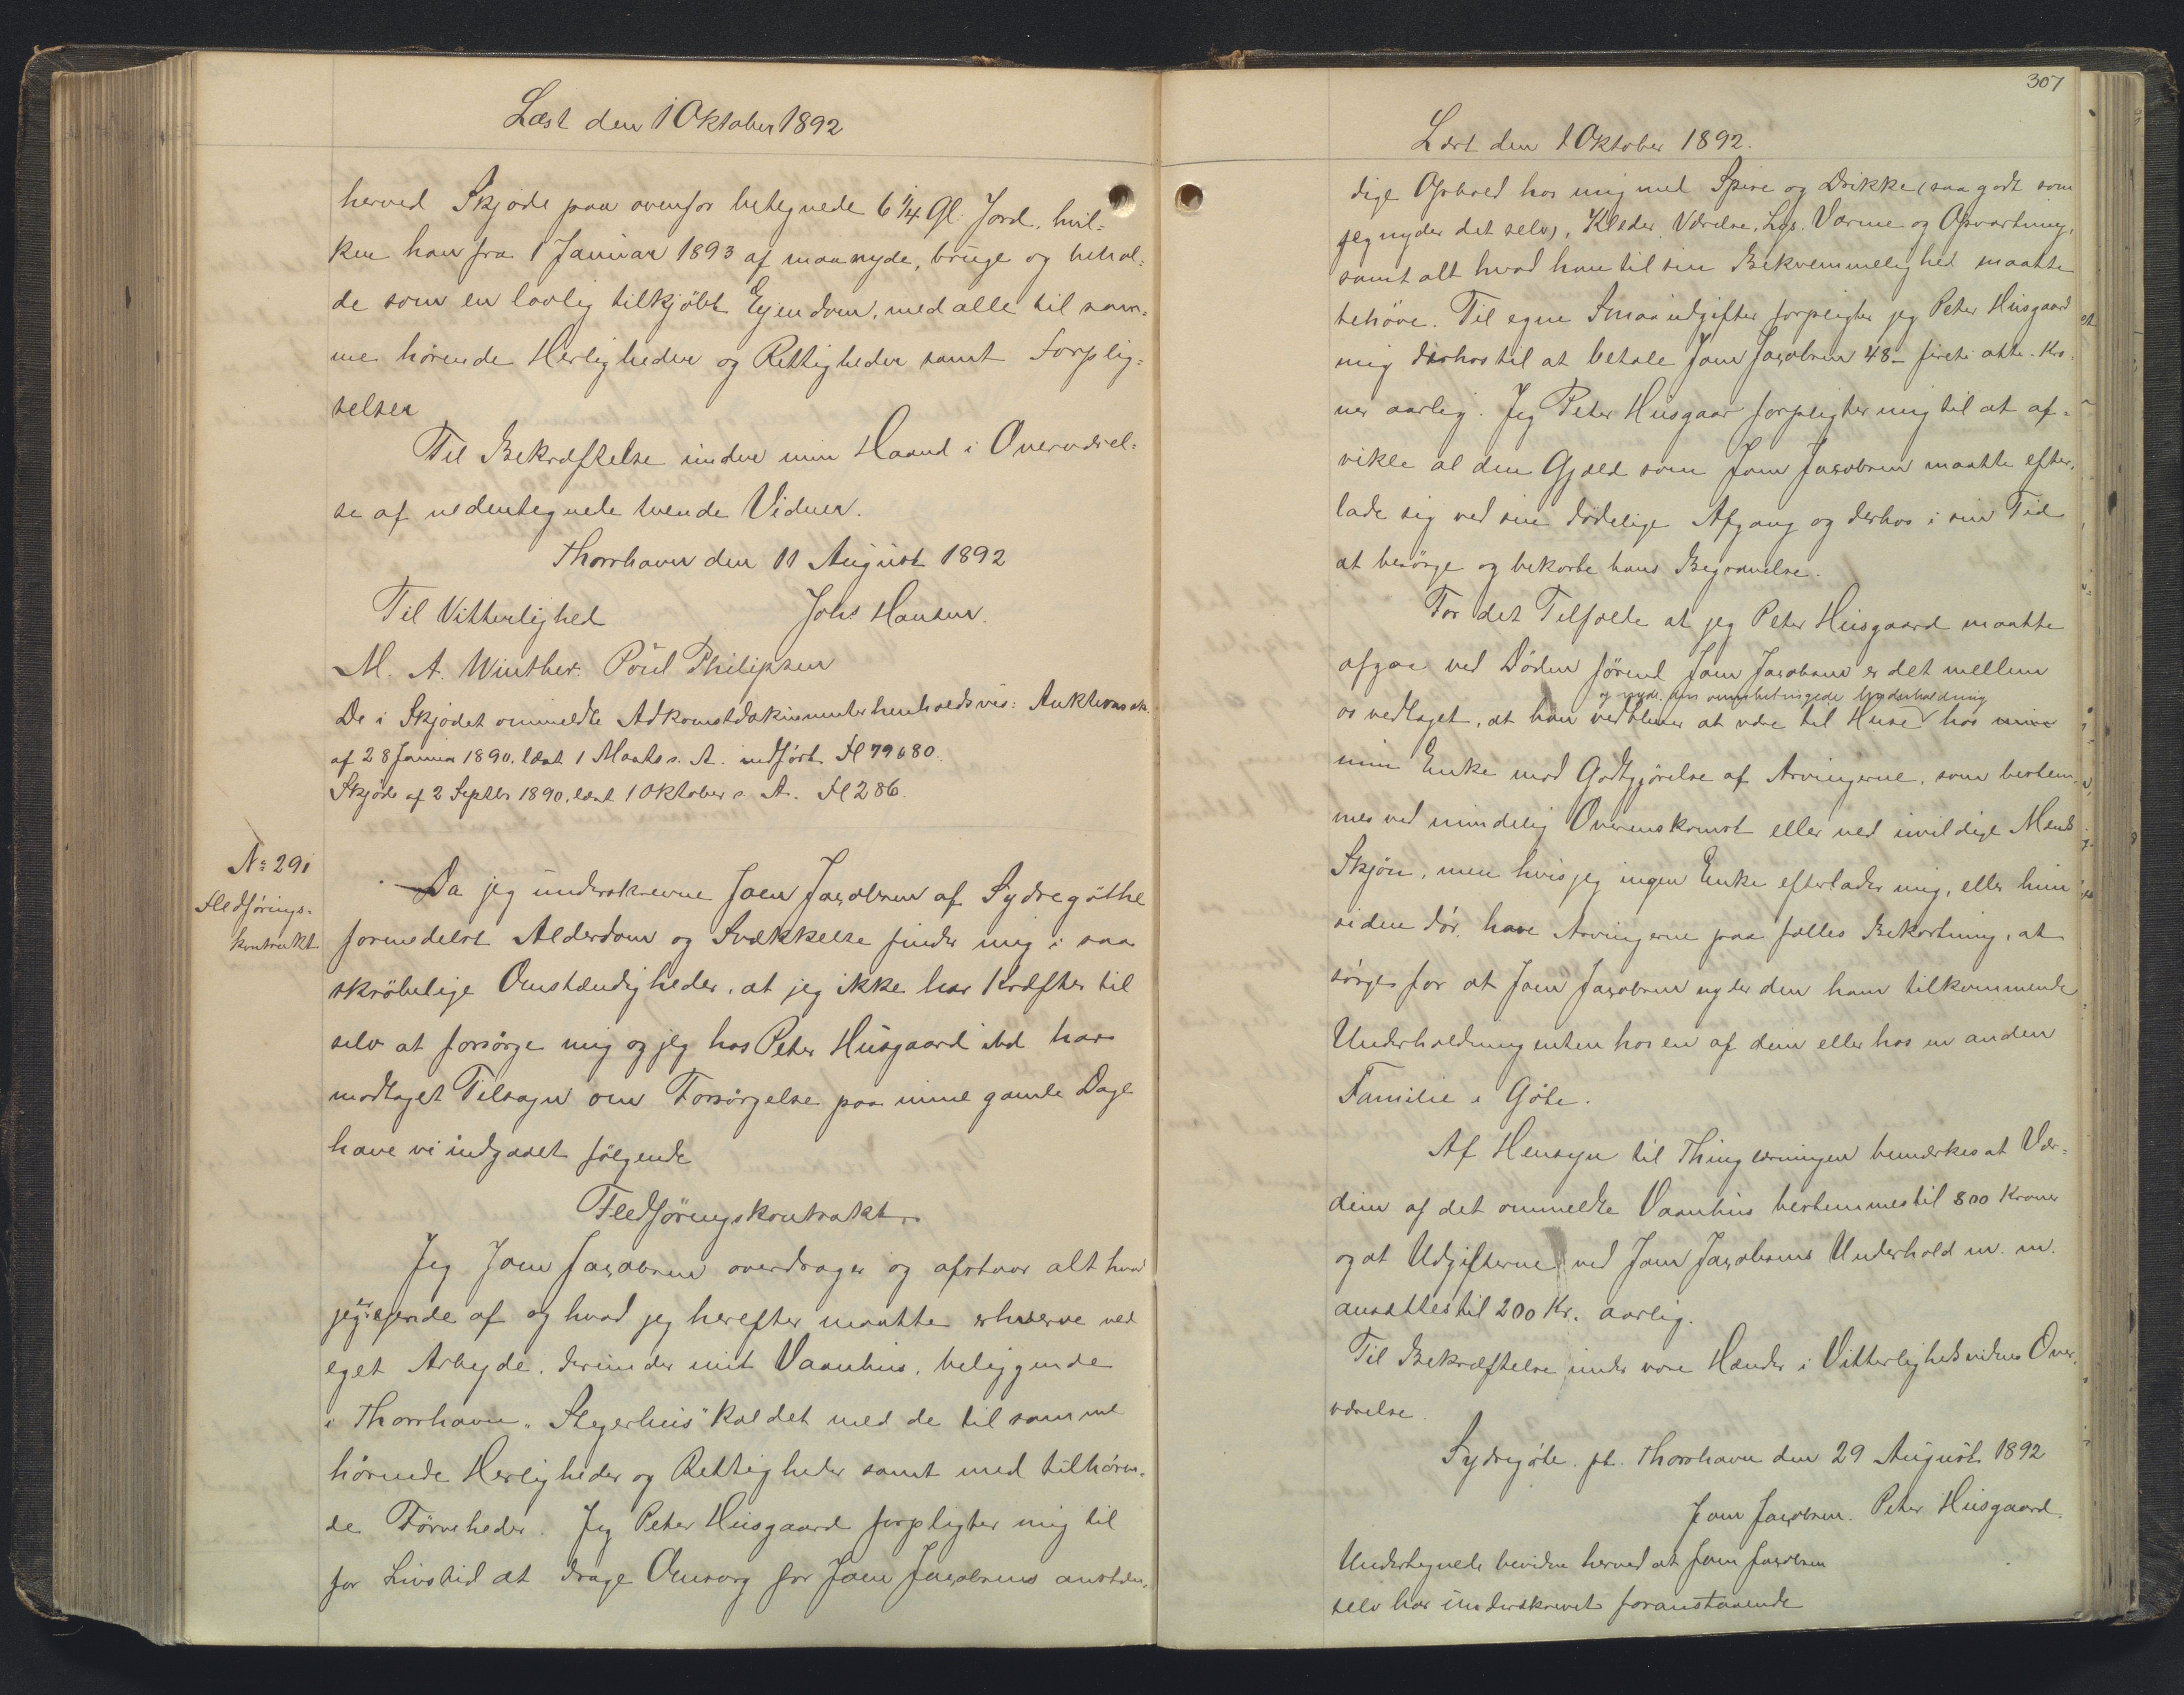 Læst den 1 Oktober 1892
herved Skjøde paa ovenfor betegnede 6 1/4 Gl. Jord, hvil=
ken han fra 1 Januar 1893 af maa nyde, bruge og behol=
de som en lovlig tilkjöbt Ejendom, med alle til sam=
me hørende Herligheder og Rettigheder samt Forplig=
telser
Til Bekræftelse under min Haand i Overværel=
se af nedentegnede tvende Vidner.
Thorshavn den 11 August 1892
Til Vitterlighed Johs Hansen.
M. A. Winther. Poul Philipsen
De i Skjødet ommeldte Adkomstdokumenter henholdsvis: Auktionssk.
af 28 Januar 1890. læst 1 Marts s. A. indført Fl 79&80.
Skjøde af 2 Septbr 1890, læst 1 Oktober s. A. Fl 286.
No 291
Fledførings=
kontrakt
Da jeg underskrevne Joen Jacobsen af Sydregöthe
formedelst Alderdom og Svækkelse finder mig i saa
skröbelige Omstændigheder, at jeg ikke har Kræfter til
selv at forsörge mig og jeg hos Peter Husgaard ibd har
modtaget Tilsagn om Forsörgelse paa mine gamle Dage
have vi indgaaet fölgende
Fledföringskontrakt.
Jeg Joen Jacobsen overdrager og afstaar alt hvad
jeg er ejende af og hvad jeg herefter maatte erhverve ved
eget Arbejde, derunder mit Vaanhus, beliggende
i Thorshavn "Stegerhus" kaldet med de til samme
hörende Herligheder og Rettigheder samt med tilhören=
de Törveheder. Jeg Peter Husgaard forpligter mig til
for Livstid at drage Omsorg for Joen Jacobsens anstæn=
307
Læst den 1 Oktober 1892.
dige Ophold hos mig med Spise og Drikke (saa godt som
jeg nyder det selv), Klæder, Værelse, Lys, Varme og Opvartning,
samt alt hvad han til sin Bekvemmelighed maatte
behöve. Til egne Smaaudgifter forpligter jeg Peter Husgaard
mig derhos til at betale Joen Jacobsen 48 - fireti otte - Kro
ner aarlig. Jeg Peter Husgaar forpligter mig til at af=
vikle al den Gjæld som Joen Jacobsen maatte efter=
lade sig ved sin dödelige Afgang og derhos i sin Tid
at besörge og bekoste hans Begravelse.
For det Tilfælde at jeg Peter Husgaard maatte
afgaa ved Döden förend Joen Jacobsen er det mellem
og nyde den ommebetingede Underholdning
os vedtaget, at han vedbliver at være til Huse hos mine
min Enke mod Godtgjörelse af Arvingerne, som bestem
mes ved mindelig Overenskomst eller ved uvildige Mænds
Skjön, men hvis jeg ingen Enke efterlader mig, eller hun
siden dör, have Arvingerne paa fælles Bekostning, at
sörge for at Joen Jacobsen nyder den ham tilkommende
Underholdning enten hos en af dem eller hos en anden
Familie i Göte.
Af Hensyn til Thinglæsningen bemærkes at Vær=
dien af det ommeldte Vaanhus bestemmes til 800 Kroner
og at Udgifterne ved Joen Jacobsens Underhold m. m.
ansættes til 200 Kr. aarlig.
Til Bekræftelse under vore Hænder i Vitterlighedsvidners Over=
værelse.
Sydregöte. pt. Thorshavn den 29 August 1892
Joen Jacobsen. Peter Husgaard.
Undertegnede bevidne herved at Joen Jacobsen
selv har underskrevet foranstaaende